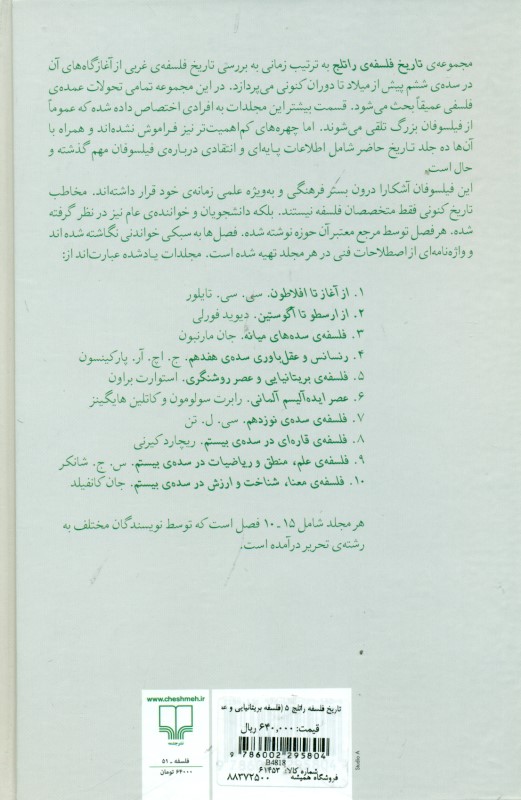 مجموعه‌ی تاریخ فلسفه‌ی راتلج به ترتیب زمانی به بررسی تاریخ فلسفه‌ی غربی از آغازگاه‌های آن
در سده‌ی ششم پیش از میلاد تا دوران کنونی می‌پردازد. در این مجموعه تمامی تحولات عمده‌ی
فلسفی عمیقاً بحث می‌شود. قسمت بیشتر این مجلدات به افرادی اختصاص داده شده که عموماً
از فیلسوفان بزرگ تلقی می‌شوند. اما چهره‌های کم‌اهمیت‌تر نیز فراموش نشده‌اند و همراه با
آن‌ها ده جلد تاریخ حاضر شامل اطلاعات پایه‌ای و انتقادی درباره‌ی فیلسوفان مهم گذشته و
حال است.
این فیلسوفان آشکارا درون بستر فرهنگی و به‌ویژه علمی زمانه‌ی خود قرار داشته‌اند. مخاطب
تاریخ کنونی فقط متخصصان فلسفه نیستند. بلکه دانشجویان و خواننده‌ی عام نیز در نظر گرفته
شده. هر فصل توسط مرجع معتبر آن حوزه نوشته شده. فصل‌ها به سبکی خواندنی نگاشته شده اند
و واژه‌نامه‌ای از اصطلاحات فنی در هر مجلد تهیه شده است. مجلدات یادشده عبارت‌اند از:
۱. از آغاز تا افلاطون. سی. سی. تایلور
۲. از ارسطو تا آگوستین. دیوید فورلی
۳. فلسفه‌ی سده‌های میانه. جان مارنبون
۴. رنسانس و عقل‌باوری سده‌ی هفدهم. ج. اچ. آر. پارکینسون
۵. فلسفه‌ی بریتانیایی و عصر روشنگری. استوارت براون
۶. عصر ایده‌آلیسم آلمانی. رابرت سولومون و کاتلین هایگینز
۷. فلسفه‌ی سده‌ی نوزدهم. سی. ل. تن
۸. فلسفه‌ی قاره‌ای در سده‌ی بیستم. ریچارد کیرنی
۹. فلسفه‌ی علم، منطق و ریاضیات در سده‌ی بیستم. س. ج. شانکر
۱۰. فلسفه‌ی معنا، شناخت و ارزش در سده‌ی بیستم. جان کانفیلد
هر مجلد شامل ۱۵ ـ ۱۰ فصل است که توسط نویسندگان مختلف به
رشته‌ی تحریر درآمده است.
www.cheshmeh.ir
نشرچشمه
فلسفه ـ ۵۱
۶۴۰۰۰ تومان
تاریخ فلسفه راتلج ۵ (فلسفه بریتانیایی و عـ
قیمت: ۶۴۰,۰۰۰ ریال
9 786002 295804
B4818
شماره کالا: ۶۱۴۵۲
فروشگاه همیشه ۸۸۳۷۲۵۰۰
Studio A